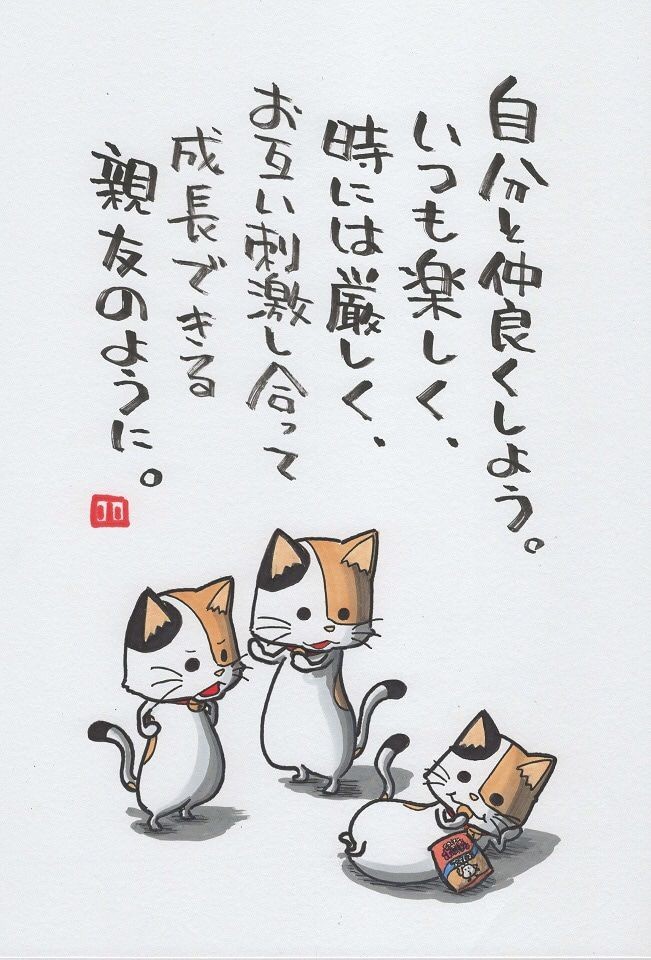 自分と仲良くしよう。
いつも楽しく、
時には厳しく、
お互い刺激し合って
成長できる
親友のように。